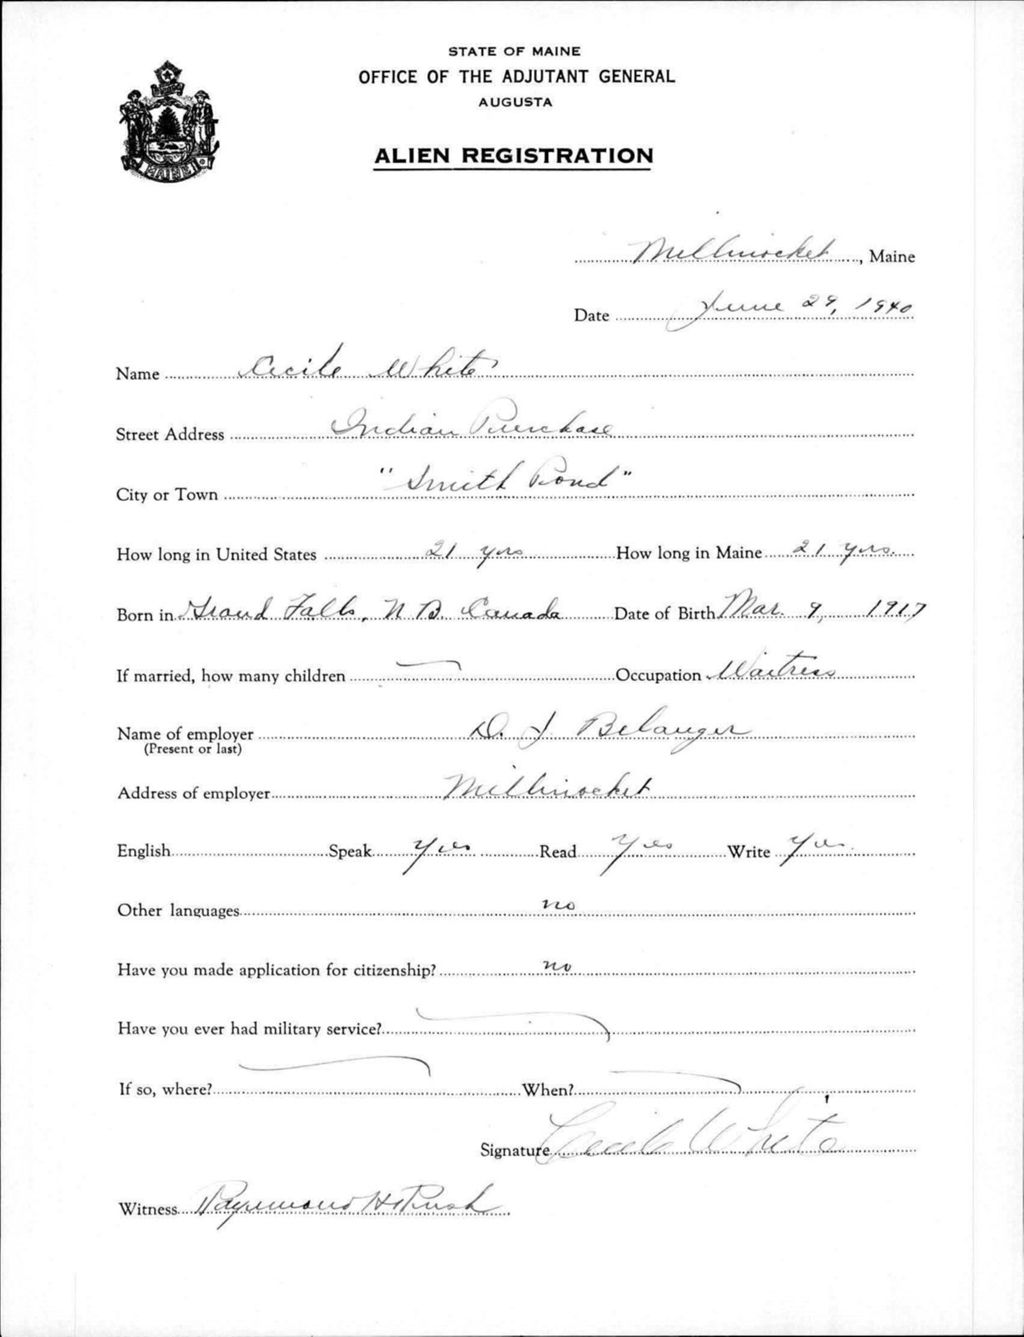 STATE OF MAINE
OFFICE OF THE ADJUTANT GENERAL
AUGUSTA
ALIEN REGISTRATION
MAINE
Millinocket, Maine
Date June 29, 1940
Name Cecile White
Street Address Indian Purchase
City or Town "Smith Pond"
How long in United States 21 yrs How long in Maine 21 yrs.
Born in Grand Falls, N.B. Canada Date of Birth Mar. 9, 1917
If married, how many children — Occupation Waitress
Name of employer D. J. Belanger
(Present or last)
Address of employer Millinocket
English Speak Yes Read Yes Write Yes
Other languages no
Have you made application for citizenship? no
Have you ever had military service? —
If so, where? — When? —
Signature Cecile White
Witness Raymond H Rush